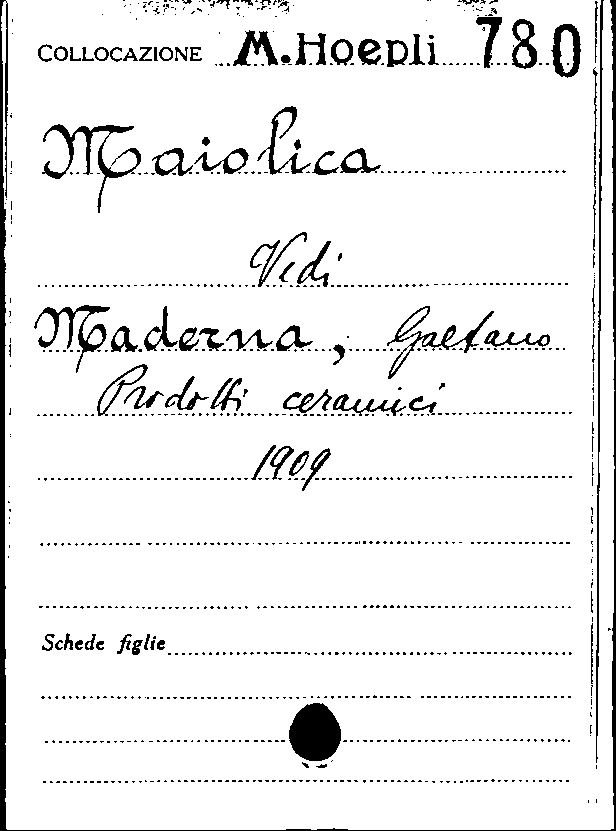 COLLOCAZIONE M.Hoepli 780
Maiolica
Vedi
Maderna, Gaetano
Prodotti ceramici
1909
Schede figlie